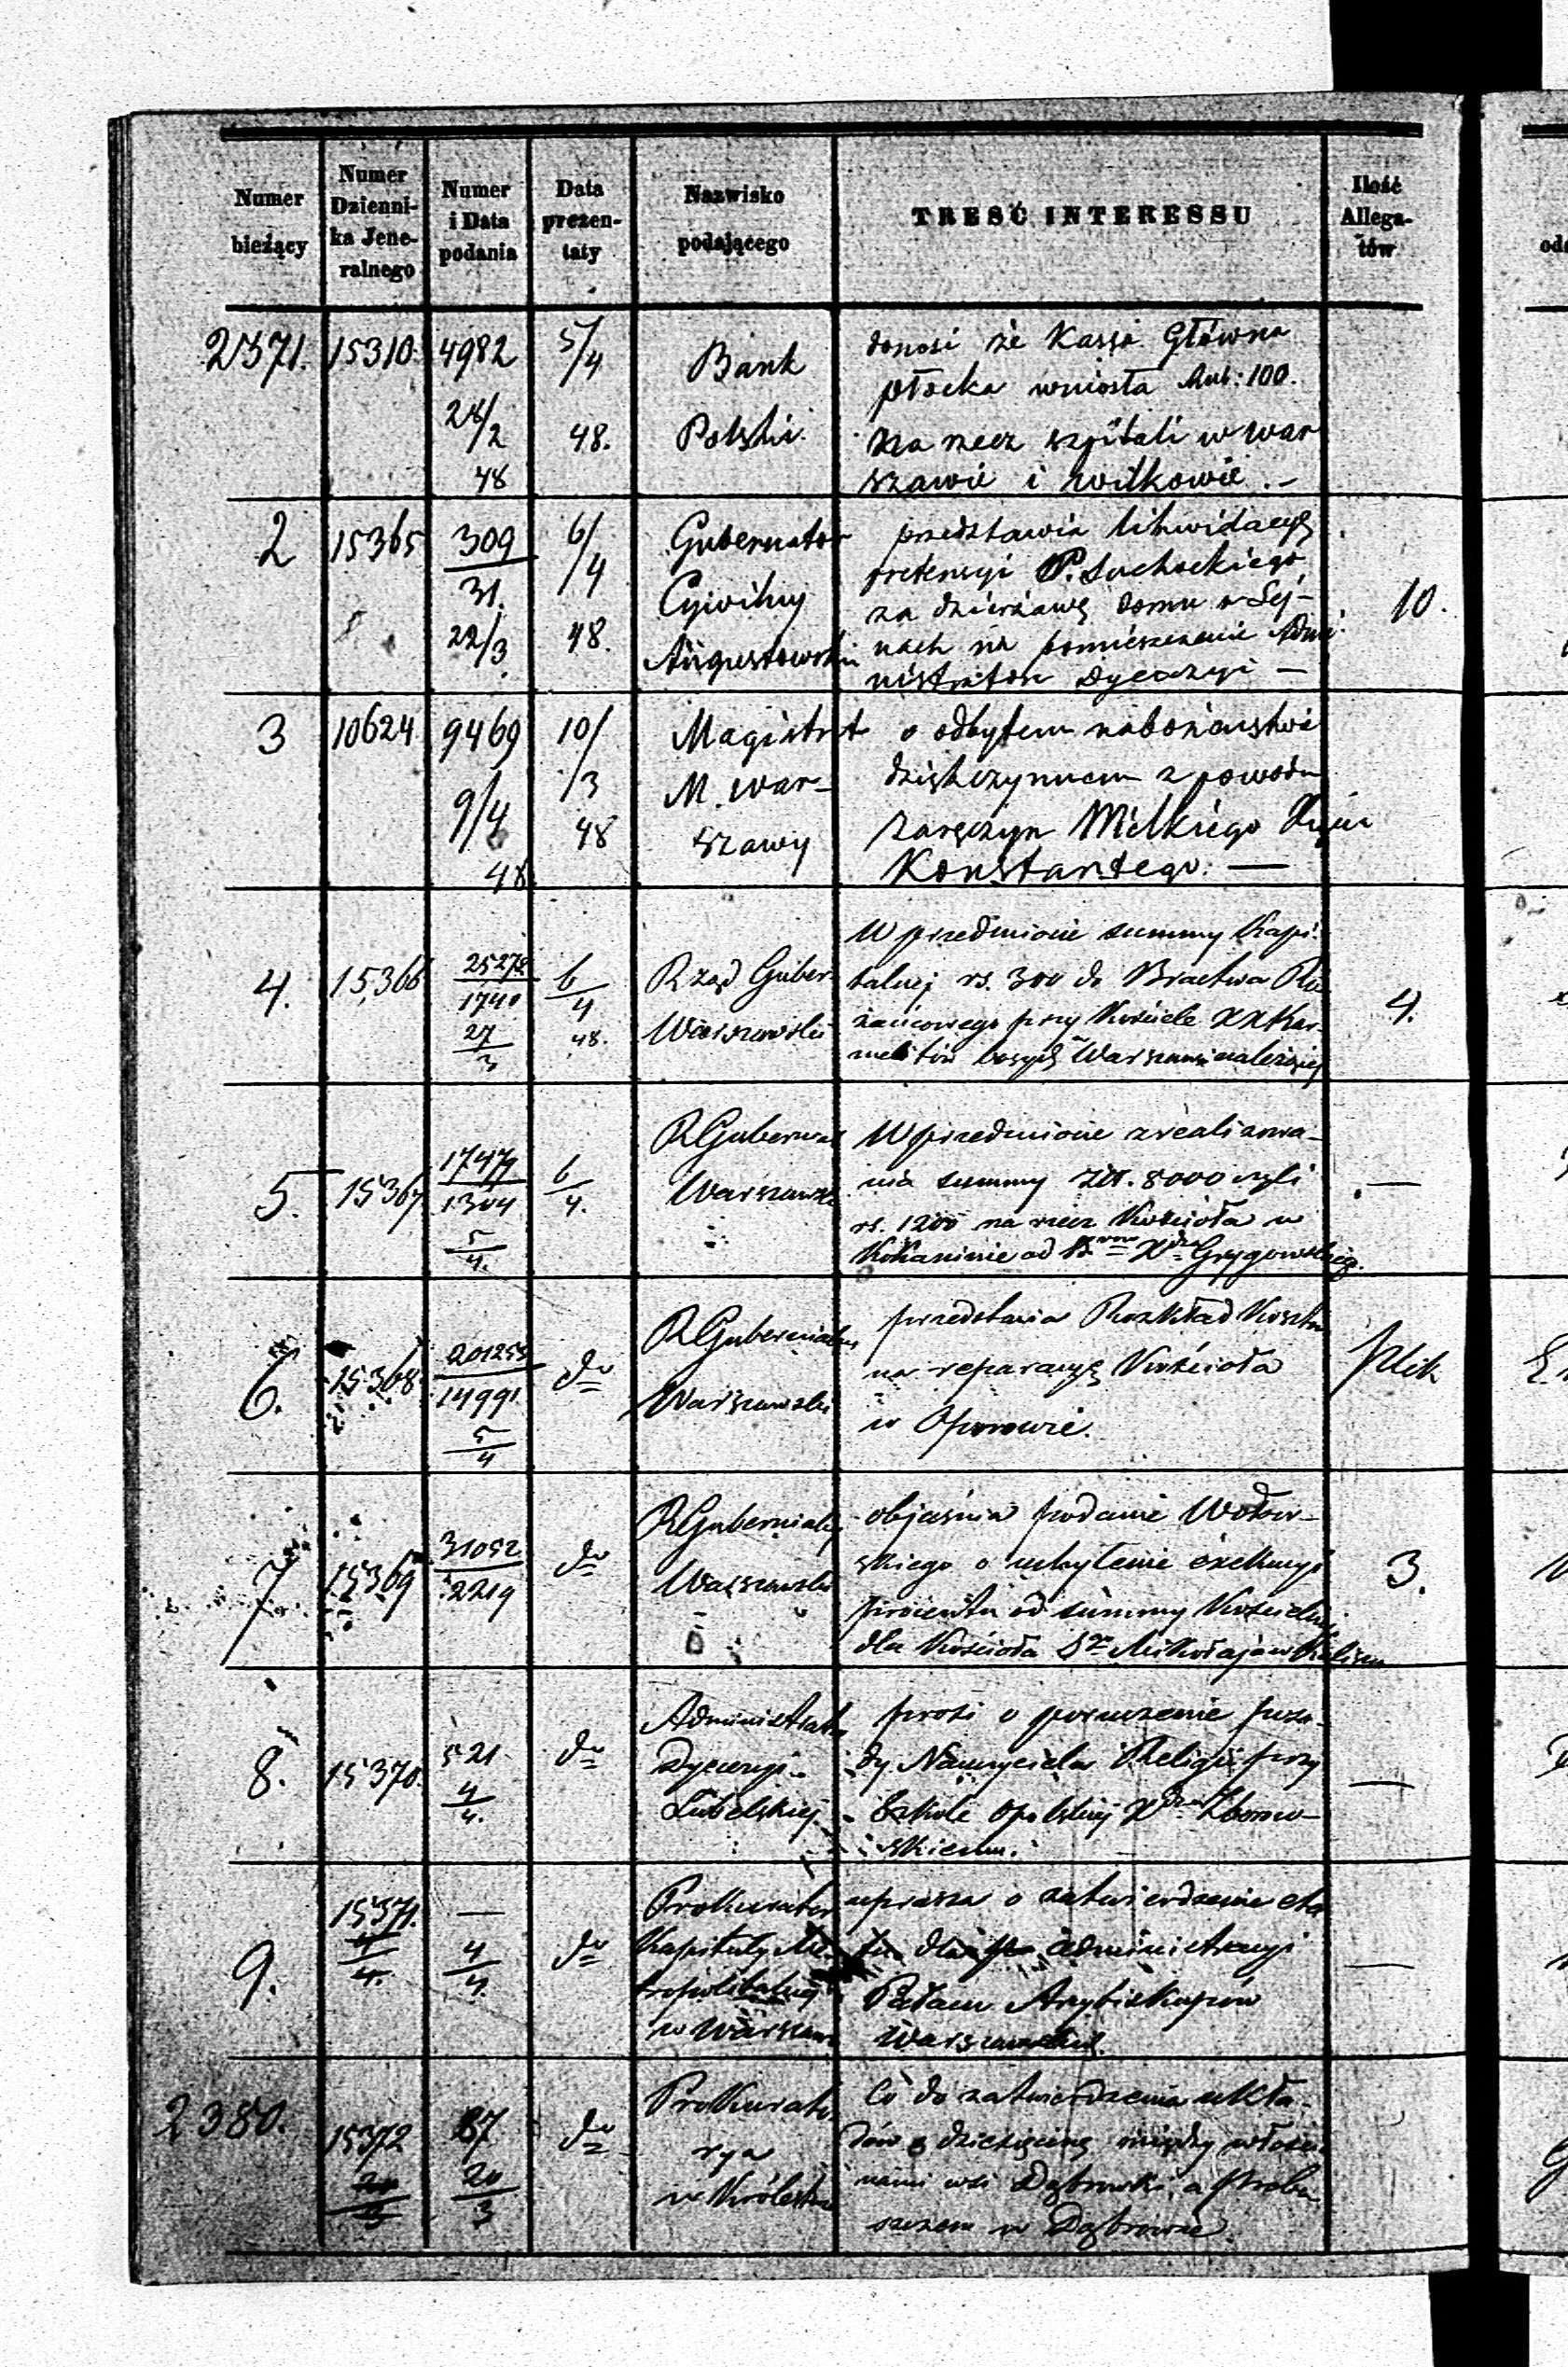 Numer bieżący
Numer Dzienni-ka Jene-ralnego
Numer i Data podania
Data prezen-taty
Nazwisko podającego
TREŚĆ INTERESSU
Ilość Allega-tów
2371. 15310 4982 28/2 48 5/4 48.
Bank
Polski.
donosi że Kassa Główna
płocka wniosła Rub: 100.
na rzecz szpitali w War
szawie i
2 15365 309/31. 22/3 6/4 48.
Gubernator
Cywilny
Augustowski
przedstawia likwidacyę
pretensyi P. Suchockiego
za dzierżawę domu w Sej-
nach na pomieszczenie Admi
nistratora Dyecezyi —
10.
3 10624 9469 9/4 48 10/3 48
Magistrat
M. War-
szawy
o odbytem nabożeństwie
dziękczynnem z powodu
zaręczyn Wielkiego Xięcia
Konstantego. —
4. 15366 25272/1740 27/3 6/4 48.
Rząd Guber.
Warszawski
W przedmiocie summy Kapi-
talnej rs. 300 do Bractwa Ró
żańcowego przy Kościele XX Kar-
melitów bosych w Warszawie należącej
4.
5. 15367 17474/1304 5/4. 6/4.
R Gubernial
Warszawski
W przedmiocie zrealizowa-
nia summy Złt. 8000 czyli
rs. 1200 na rzecz Kościoła w
Kokaninie od Xdza Grygowskiego.
—
6. 15368 201255/14991 5/4 do
R Gubernialny
Warszawski
przedstawia Rozkład Kosztu
na reparacyę Kościoła
w Oporowie.
Plik
7 15369 31052/2219 do
R Gubernialny
Warszawski
objaśnia podanie Wołow-
skiego o uchylenie exekucyi
procentu od summy Kościelnej
dla Kościoła Sgo Mikołaja w Kaliszu
3.
8. 15370. 521 4/4. do
Administrator
Dyecezyi
Lubelskiej
prosi o poruczenie posa-
dy Nauczyciela Religii przy
Szkole Opolskiej Xdzu Zborow-
skiemu.
—
9. 15371. 4/4. — 4/4. do
Prokurator
Kapituły Me-
tropolitalnej
w Warszawie
uprasza o zatwierdzenie eta
tu dla administracyi
Pałacu Arcybiskupów
Warszawskich.
—
2380. 15372 20/3 87 20/3 do
Prokurato
rya
w Królestwie
Co do zatwierdzenia ukła-
dów o dziesięcinę między włościa
nami wsi Dąbrowki, a Probo
szczem w Dąbrowie.